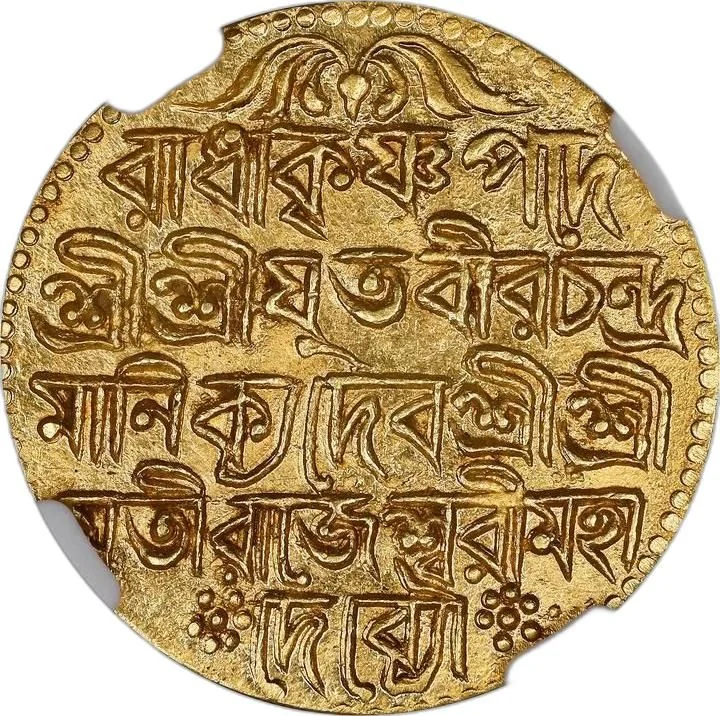 রাধাকৃষ্ণ পদে
শ্রীশ্রীযুত বীরচন্দ্র
মানিক্য দেব শ্রীশ্রী
মতী রাজেশ্বরী মহা
দেব্যৌ